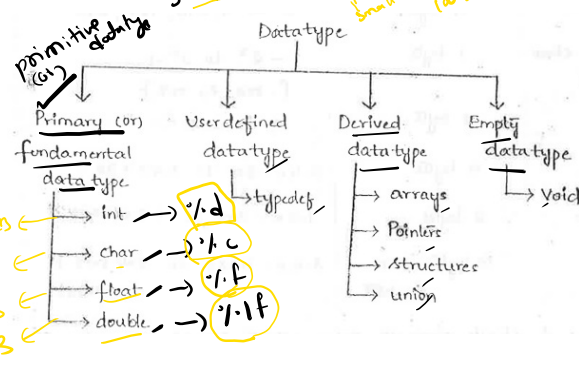 Datatype
primitive datatype
(or)
Primary (or)
fundamental
data type
int → %d
char → %c
float → %f
double → %lf
User defined
datatype
typedef
Derived
datatype
arrays
Pointers
structures
union
Empty
datatype
Void